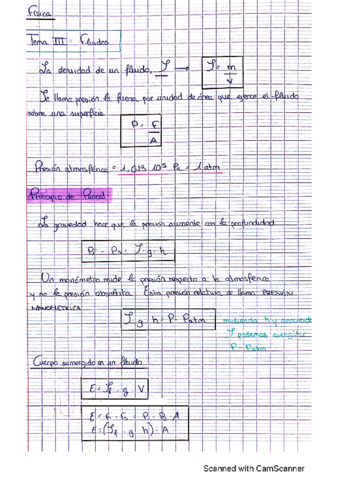 Física
Tema III: Fluidos
La densidad de un fluido, ρ → ρ = m / V
Se llama presión la fuerza por unidad de área que ejerce el fluido
sobre una superficie
P = F / A
Presión atmosférica = 1,013 10⁵ Pa = 1 atm
Principio de Pascal
La gravedad hace que la presión aumente con la profundidad
ρ · g · h
Un manómetro mide la presión respecto a la atmosférica
y no la presión absoluta. Esta presión relativa se llama PRESIÓN
MANOMÉTRICA
ρ · g · h = P - Patm
midiendo h y conociendo
ρ podemos averiguar
P - Patm
Cuerpo sumergido en un fluido
E = ρf · g · V
E = (ρf · g · h) · A
Scanned with CamScanner